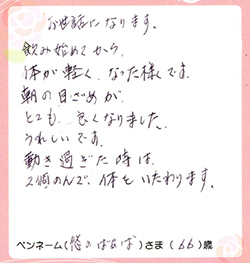 お世話になります。
飲み始めてから、
体が軽くなった様です。
朝の目ざめが、
とても良くなりました。
うれしいです。
動き過ぎた時は
2個のんで、体をいたわります。
ペンネーム(悠のばぁば)さま(66)歳